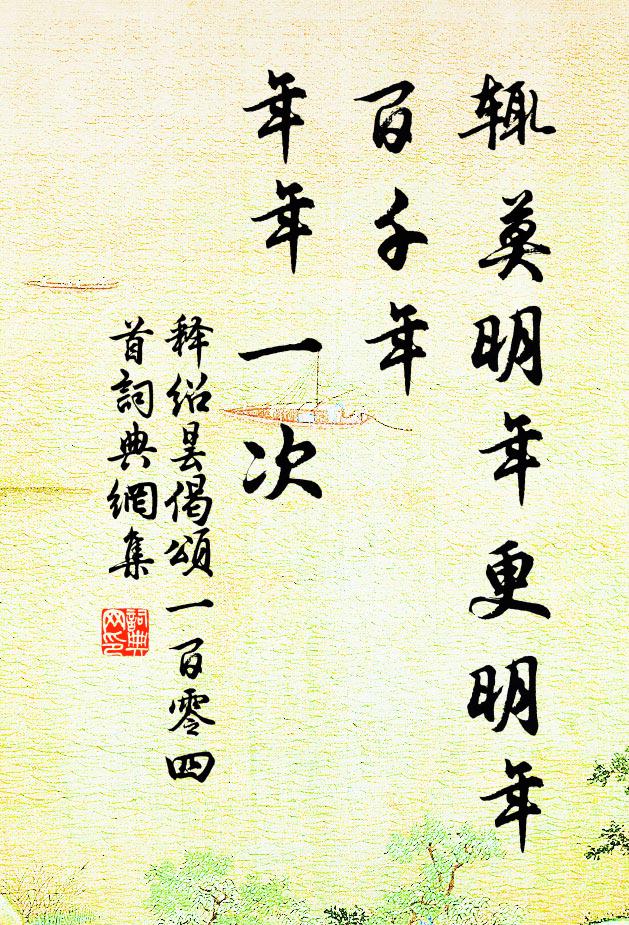 辄莫明年更明年
百千年
年年一次
释绍昙偈頌一百零四
首詞典網集
詞典网印